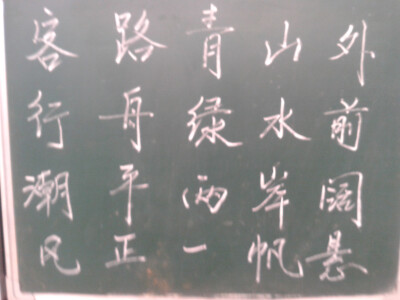 客路青山外
行舟绿水前
潮平两岸阔
风正一帆悬